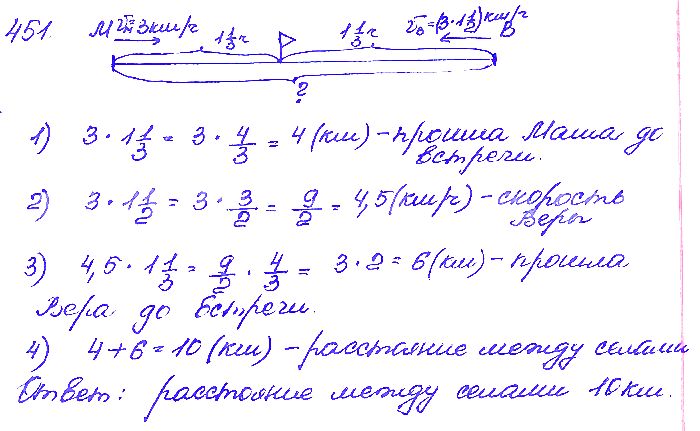 451. М vм=3км/ч 1 1/3 ч 1 1/3 ч vв=(3·1 1/2) км/ч В
?
1) 3 · 1 1/3 = 3 · 4/3 = 4 (км) – прошла Маша до
встречи.
2) 3 · 1 1/2 = 3 · 3/2 = 9/2 = 4,5 (км/ч) – скорость
Веры
3) 4,5 · 1 1/3 = 9/2 · 4/3 = 3 · 2 = 6 (км) – прошла
Вера до встречи.
4) 4 + 6 = 10 (км) – расстояние между селами
Ответ: расстояние между селами 10 км.